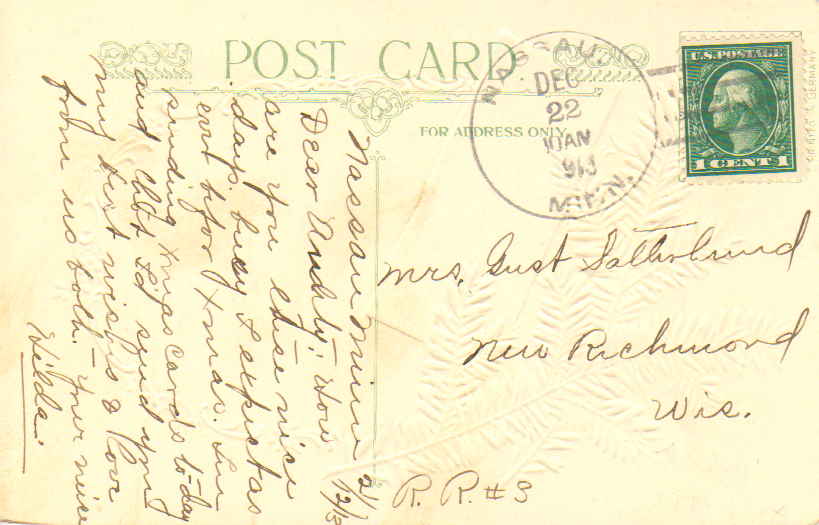 POST CARD.
FOR ADDRESS ONLY
NASSAU,
DEC
22
10 AM
1913
MINN.
U.S. POSTAGE
1 CENT 1
Nassau Minn 21/12/13
Dear Aunty! How
are you these nice
days, busy I expect as
ever befor Xmas. Im
sending Xmas cards to-day
and I'd send you
my best wishes & love
from us both. Your niece
Hilda.
Mrs. Gust
New Richmond
Wis.
R. R. #3
GERMANY